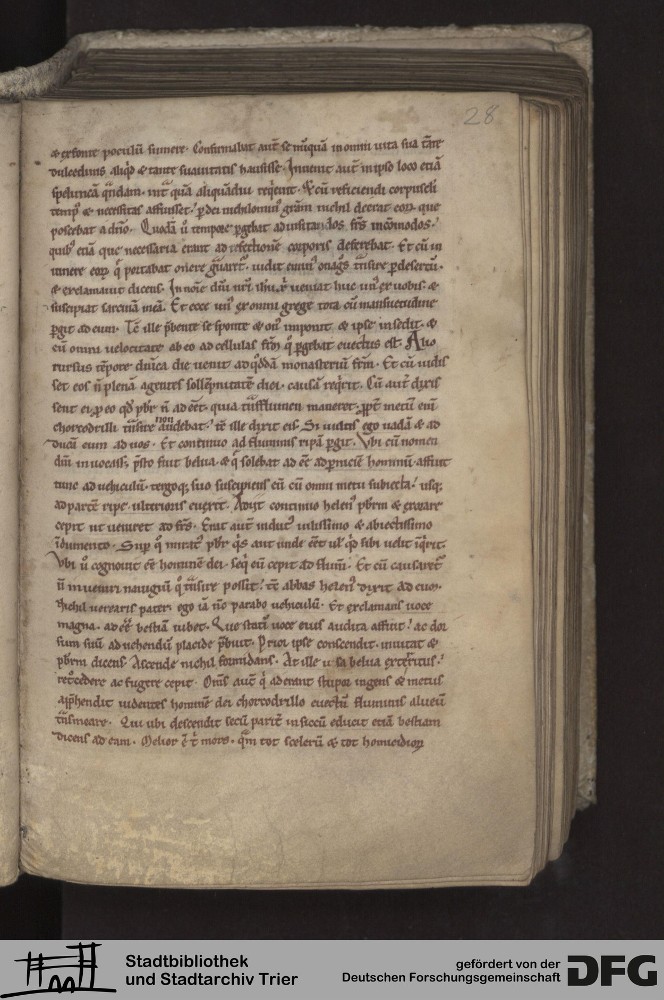 28
& ex fonte poculū sumere. Confirmabat aut̄ se nūquā in omni uita sua tāte
dulcedinis aliqd & tante suauitatis hausisse. Inuenit aut̄ in ipso loco etiā
speluncā quandam. int quā aliquādiu reqeuit. & cū reficiendi corpusculi
temp & necessitas affuisset. p dei nichilomin grām nichil deerat eorum que
poscebat a dn̄o. Quodā u tempore pgebat ad uisitandos frs̄ in cōmodos.
quib etiā que necessaria erant ad refectionē corporis deferebat. Et cū in
itinere eorum q portabat onere guaret. uidit emin onagros transire p desertū.
& exclamauit dicens. In noīe dn̄i nr̄i ihū xp̄i ueniat huc un ex uobis &
suscipiat sarcinā meā. Et ecce un ex omni grege tota cū mansuetudine
pgit ad eum. Tc̄ ille p̄bente se sponte & on imponit & ipse insedit. &
cū omni uelocitate ab eo ad cellulas frm̄ q pgebat euectus est. Alio
rursus tēpore diuica die uenit ad qddā monasteriū frm̄. Et cū uidis
set eos n̄ plenā agentes sollēpnitatē diei. causā reqrit. Cū aut̄ dixis
sent ei p eo qd pbr n̄ adeēt. quia trans flumen maneret. ppt metū eni
chorcodrilli transire non audebat. tc̄ ille dixit eis. Si uultis ego uadā & ad
ducā eum ad uos. Et continuo ad fluminis ripā pgit. Vbi cū nomen
dn̄i inuocass;. p̄sto fuit belua. & q solebat ad eē ad p̄niciē hominū. affuit
tunc ad uehiculū. tergoq; suo suscipiens eū cū omni metu subiecta. usq;
ad partē ripe ulterioris euexit. Adiit continuo helen pbrm & exorare
cepit ut ueniret ad frs̄. Erat aut̄ indut uilissimo & abiectissimo
indumento. Sup q mirat pbr qs eēt aut unde eēt ul qd sibi uelit inqrit.
Vbi u cognouit eē hominē dei. seq eū cepit ad flum̄. Et cū causaret
n̄ inueniri nauigiū q transire possit. tc̄ abbas helen dixit ad eum.
Nichil uerearis pater. ego iā nc̄ parabo uehiculū. Et exclamans uoce
magna. adeē bestiā iubet. Que statī uoce eius audita affuit. ac dor
sum suū ad uehendū placide p̄buit. Prior ipse conscendit. inuitat &
pbrm dicens. Ascende nichil formidans. At ille uisa belua exterritus.
retcedere ac fugere cepit. Om̄s aut̄ q aderant stupor ingens & metus
app̄hendit uidentes hominē dei chorcodrillo euectū fluminis alueū
transmeare. Qui ubi descendit secū parit in siccū educit etiā bestiam
dicens ad eam. Melior ē t mors. qm tot scelerū & tot homicidiorum
Stadtbibliothek
und Stadtarchiv Trier
gefördert von der
Deutschen Forschungsgemeinschaft
DFG